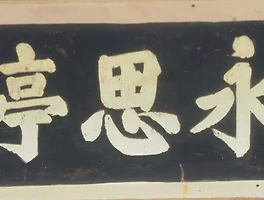 永思亭